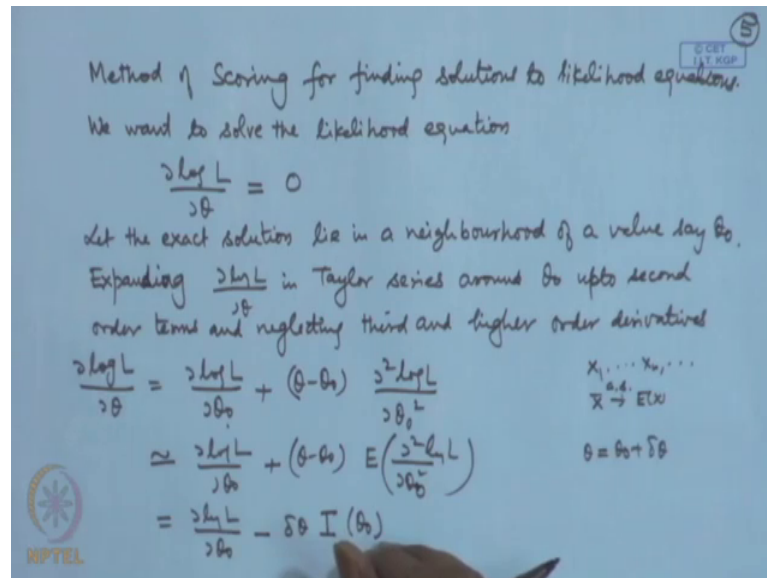 5
© CET
I.I.T. KGP
Method of Scoring for finding solutions to likelihood equations.
We want to solve the likelihood equation
∂ log L / ∂θ = 0
Let the exact solution lie in a neighbourhood of a value say θ₀.
Expanding ∂ log L / ∂θ in Taylor series around θ₀ upto second
order terms and neglecting third and higher order derivatives
∂ log L / ∂θ = ∂ log L / ∂θ₀ + (θ-θ₀) ∂² log L / ∂θ₀²
X₁, .... Xₙ, ...
X̄ →a.s. E(X)
≃ ∂ log L / ∂θ₀ + (θ-θ₀) E(∂² log L / ∂θ₀²)
θ = θ₀ + δθ
= ∂ log L / ∂θ₀ - δθ I(θ₀)
NPTEL